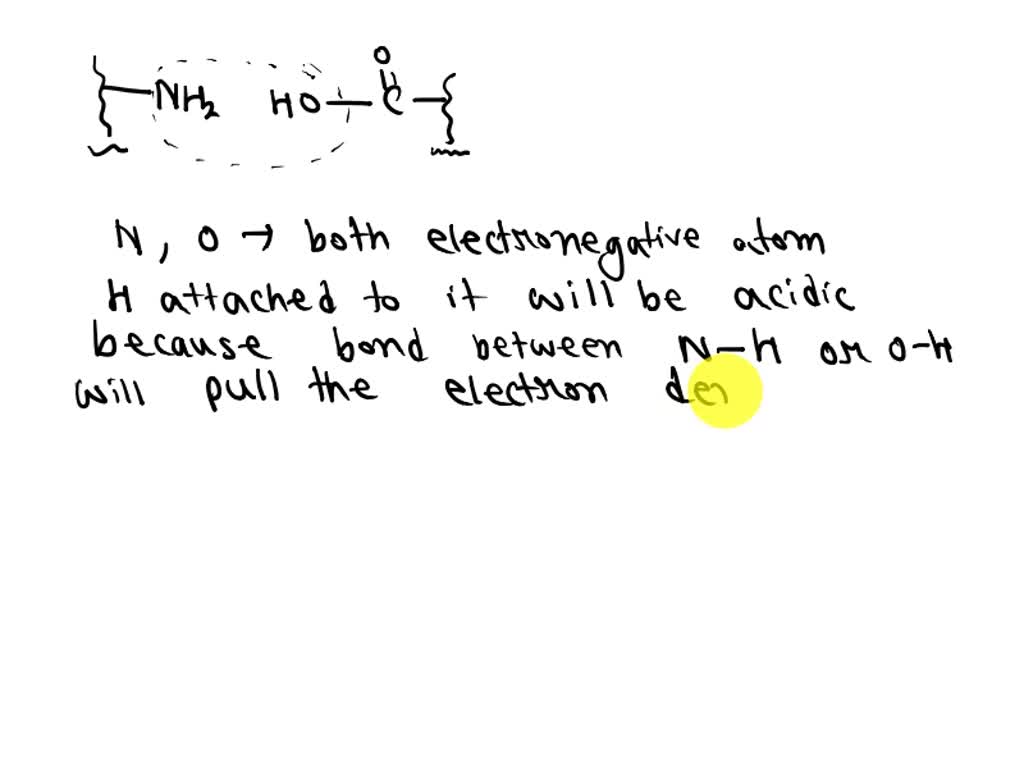 O
NH2 HO C
N, O → both electronegative atom
H attached to it will be acidic
because bond between N-H or O-H
will pull the electron de